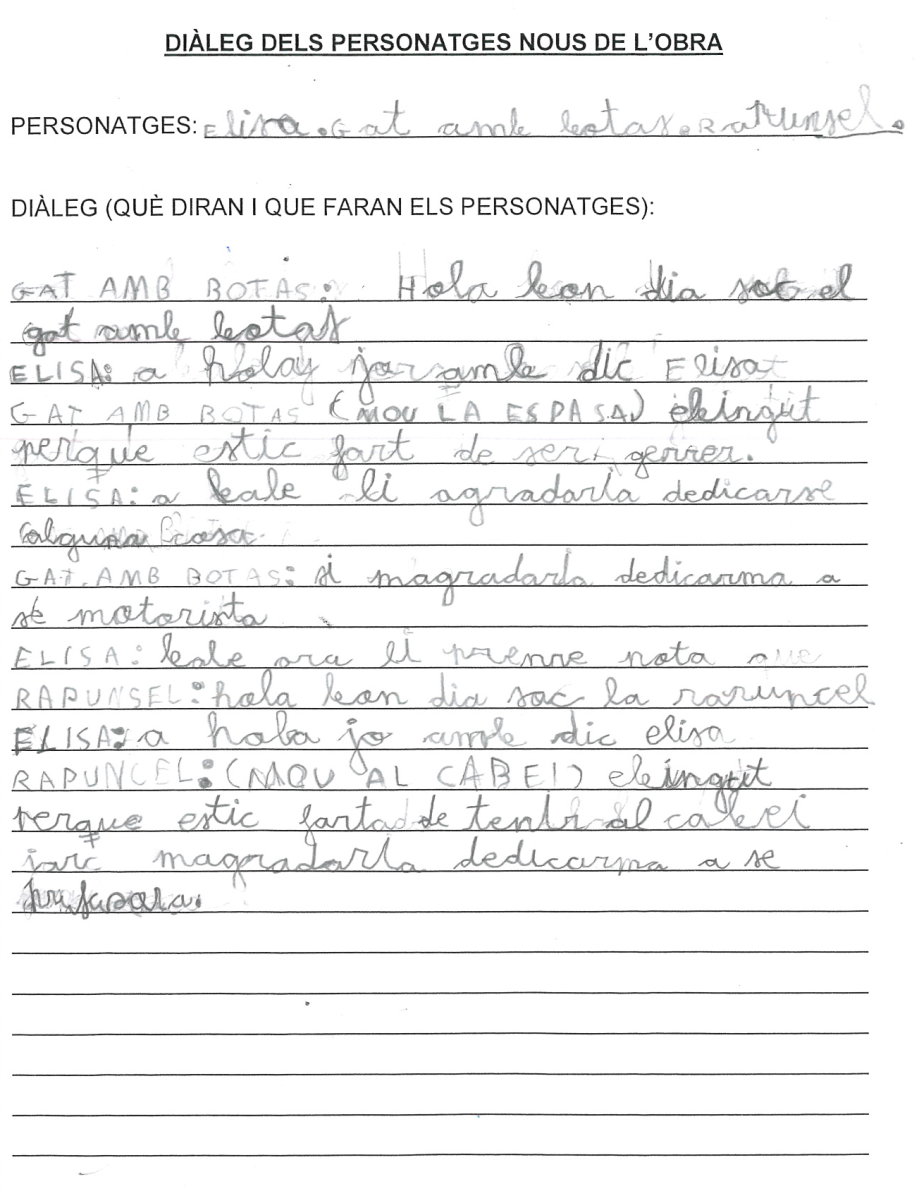 DIÀLEG DELS PERSONATGES NOUS DE L'OBRA
PERSONATGES: Elisa. Gat amb botas. Ratunsel.
DIÀLEG (QUÈ DIRAN I QUE FARAN ELS PERSONATGES):
GAT AMB BOTAS: Hola bon dia soc el
gat amb botas
ELISA: a hola jo amb dic Elisa
GAT AMB BOTAS (MOU LA ESPASA) e bingut
perque estic fart de ser gerrer.
ELISA: a bale li agradaria dedicarse
alguna cosa.
GAT AMB BOTAS: si magradaria dedicarma a
se motorista
ELISA: bale ara li prenre nota
RAPUNSEL: hola bon dia soc la rapuncel
ELISA: a hola jo amb dic elisa
RAPUNCEL: (MOU AL CABEI) e bingut
perque estic farta de tenir al cabei
magradaria dedicarma a se